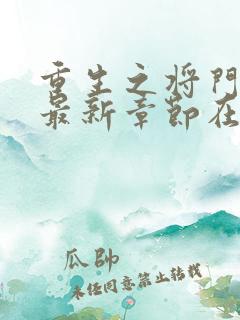 重生之将門
最新章節在
瓜帥
未经同意禁止转载